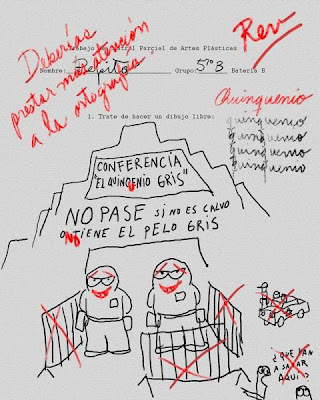 Deberías
prestar más atención
a la ortografía
Rev
Trabajo Parcial de Artes Plásticas
Nombre: Pepito Grupo: 5to B Batería B
1. Trate de hacer un dibujo libre:
Quinquenio
quinquenio
quinquenio
quinquenio
quinquenio
CONFERENCIA
"EL QUINQUENIO GRIS"
NO PASE SI NO ES CALVO
O NO TIENE EL PELO GRIS
¿QUÉ VAN
A SACAR
AQUÍ?